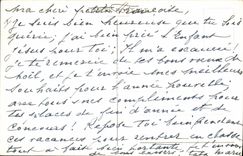 Ma chère petite Françoise,
Je suis bien heureuse que tu sois
guérie, j'ai bien prié l'Enfant
Jésus pour toi; Il m'a exaucée!
Je te remercie de tes bons vœux de
Noël, et je t'envoie mes meilleurs
souhaits pour l'année nouvelle,
avec tous mes compliments pour
tes places de fin d'année et de
concours. Repose toi bien pendant
ces vacances pour rentrer en classe
tout à fait bien portante, je t'envoie
de bons baisers.